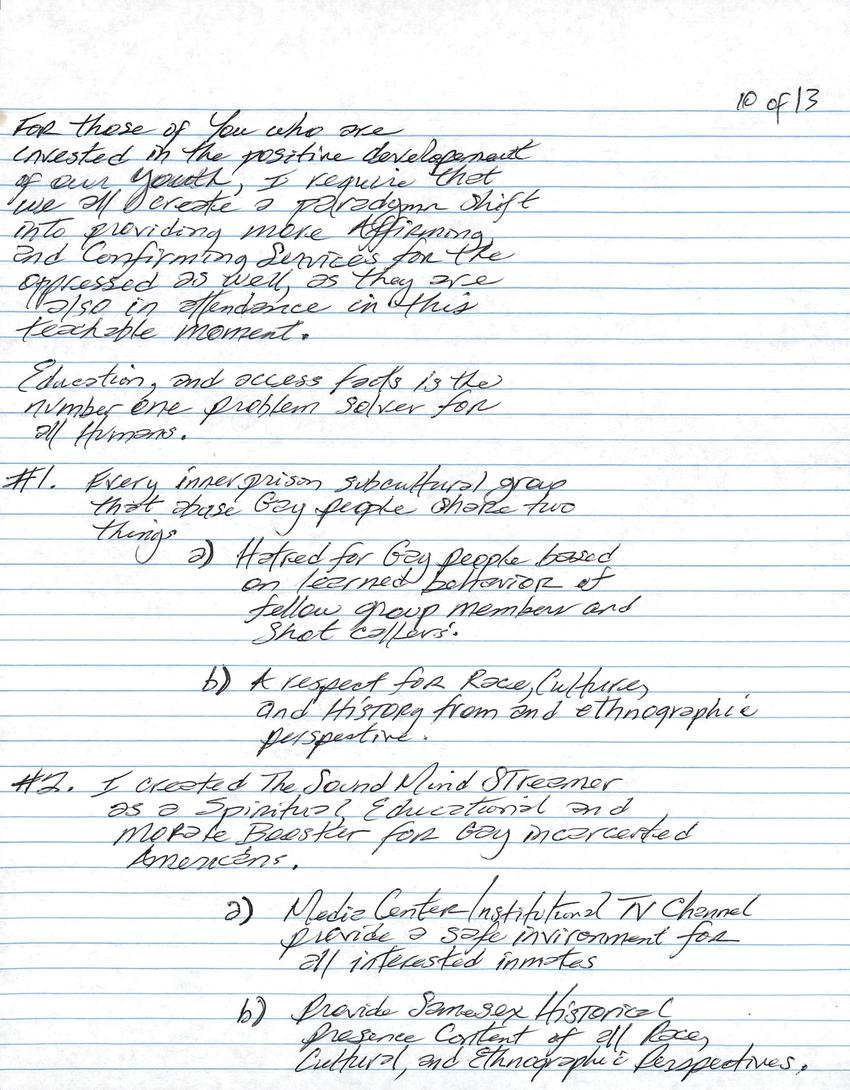 10 of 13
For those of You who are
invested in the positive developement
of our Youth, I require that
we all create a paradymn shift
into providing more Affirming
and Confirming Services for the
oppressed as well, as they are
also in attendance in this
teachable moment.
Education, and access facts is the
number one problem solver for
all Humans.
#1. Every inner prison subcultural group
that abuse Gay people share two
things
a) Hatred for Gay people based
on learned behavior of
fellow group members and
Shot callers.
b) A respect for Race, Culture,
and History from and ethnographic
perspective.
#2. I created The Sound Mind Streamer
as a Spiritual, Educational and
Morale Booster for Gay incarcerted
Americans.
a) Media Center/Institutional TV Channel
provide a safe invironment for
all interested inmates
b) Provide Samesex Historical
presence Content of all Race,
Cultural, and Ethnographic Perspectives.